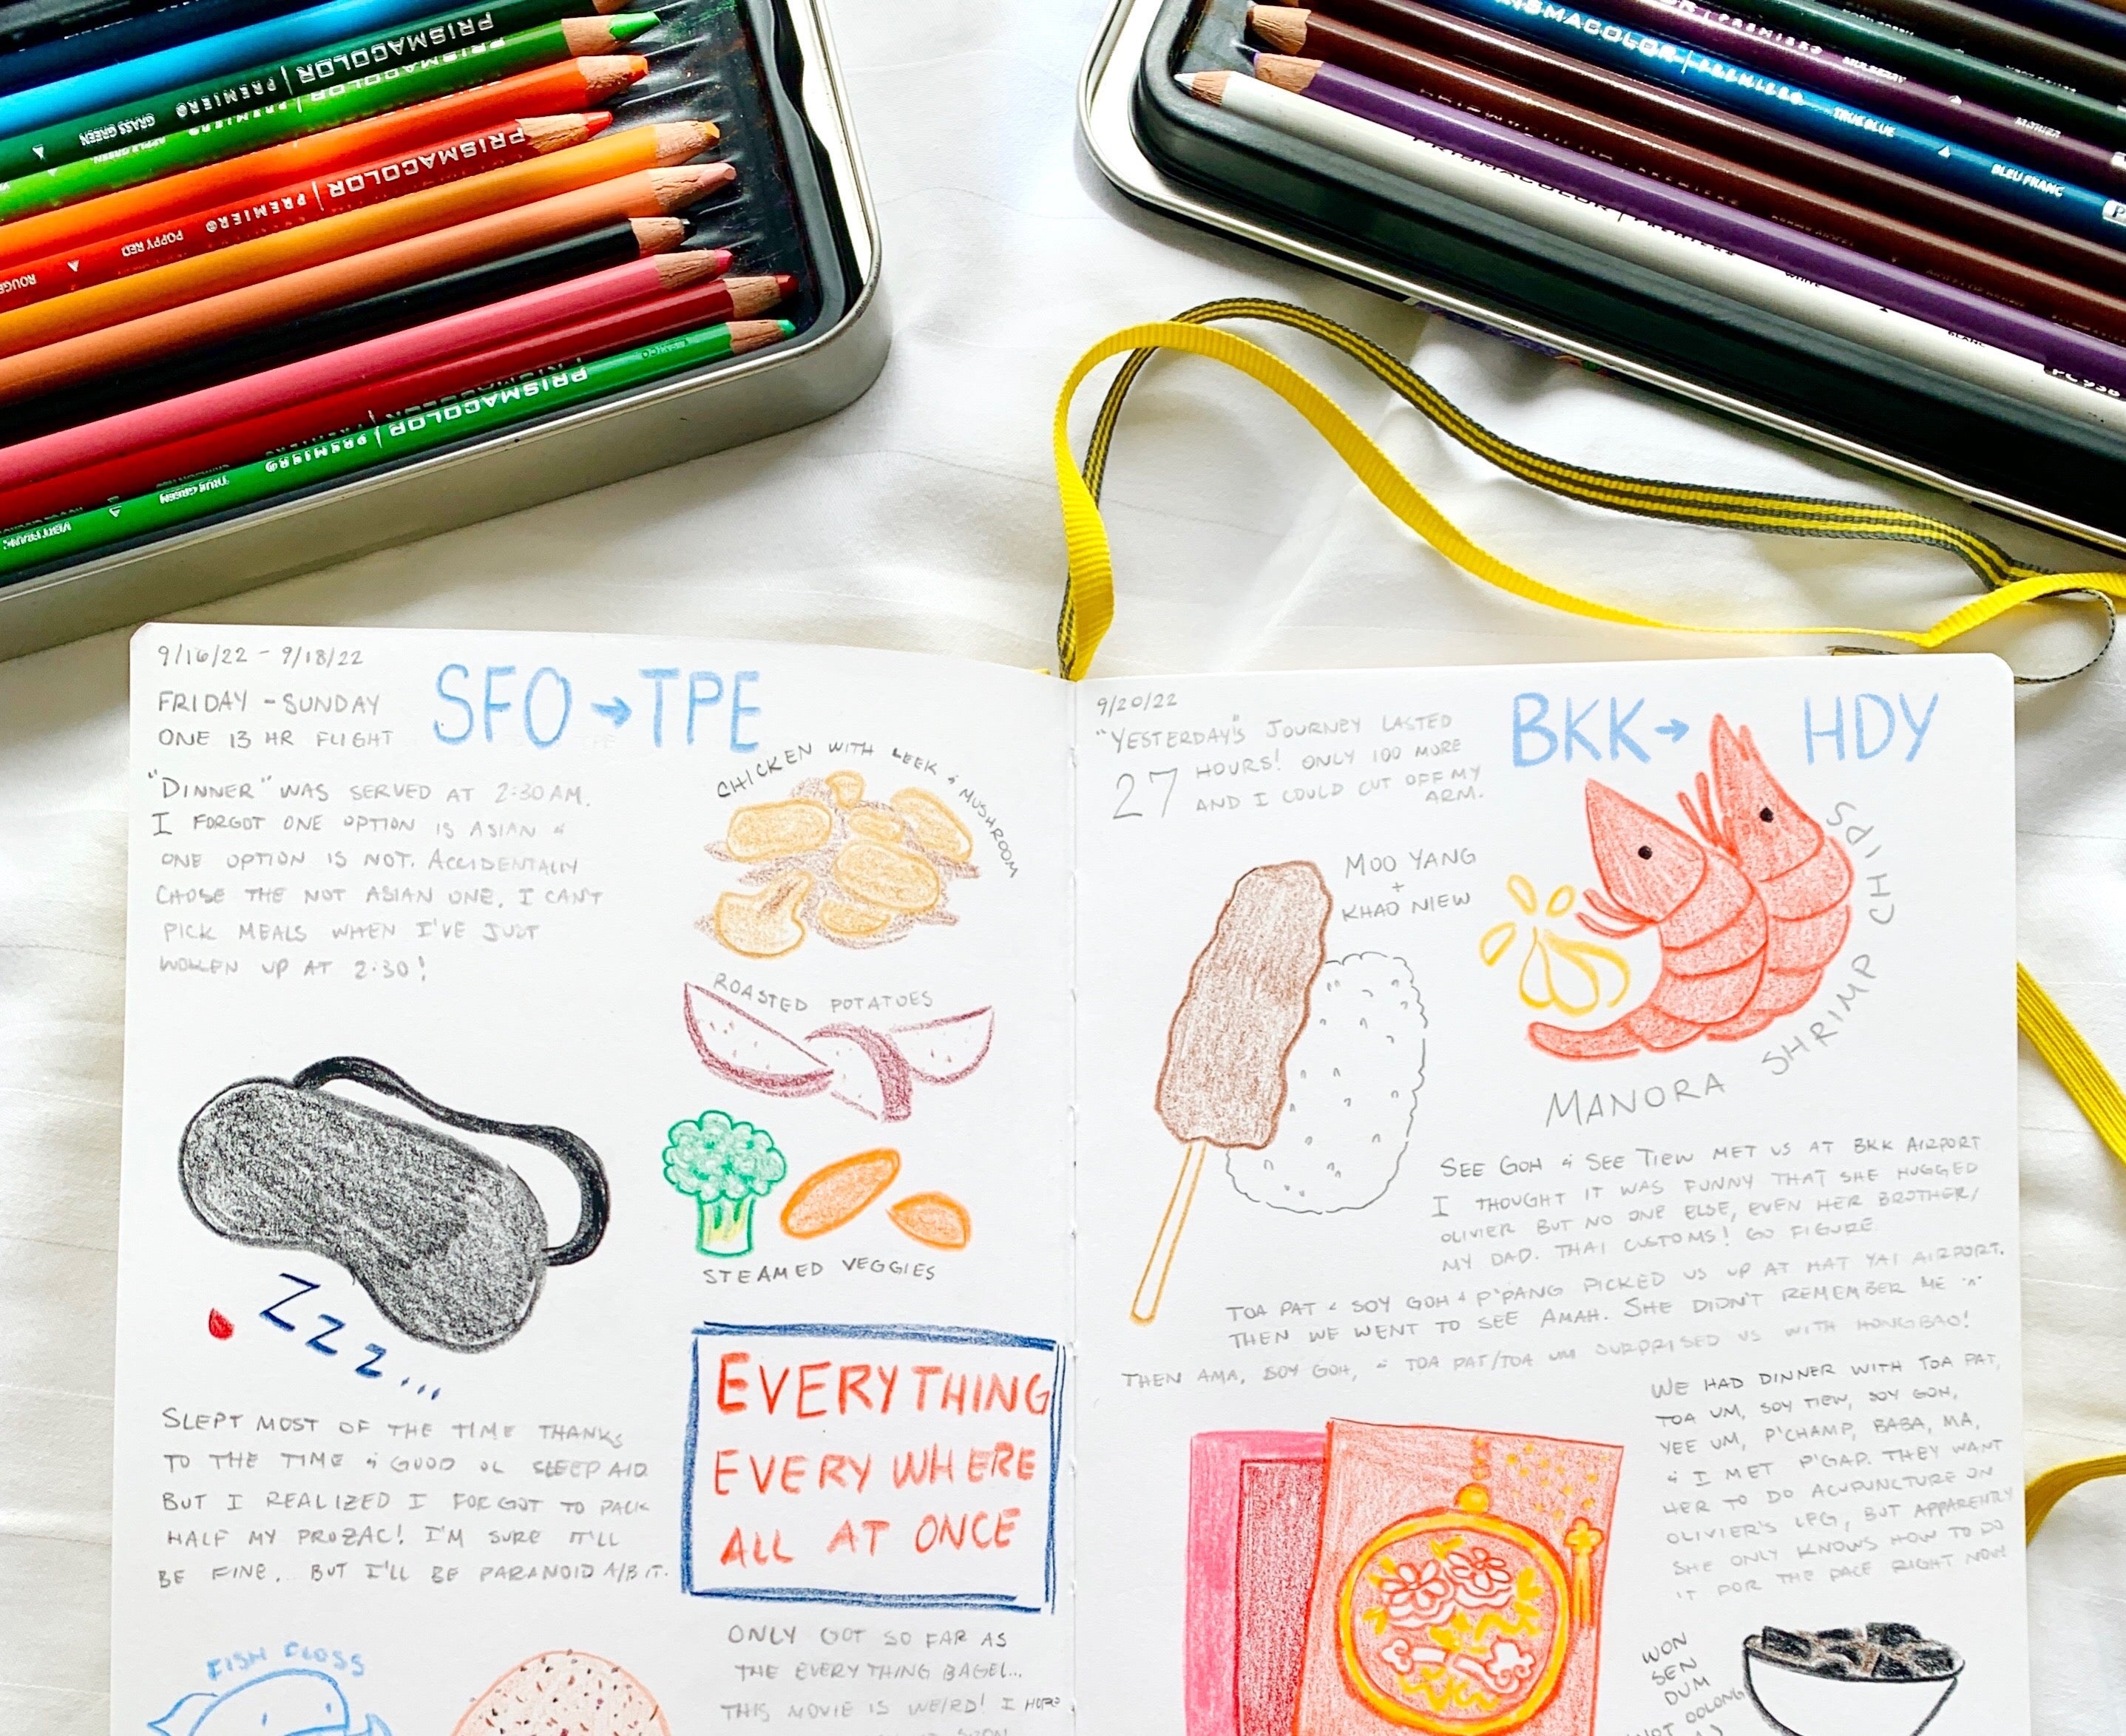 PRISMACOLOR | PREMIER®
GRASS GREEN
PRISMACOLOR | PREMIER®
APPLE GREEN
PRISMACOLOR | PREMIER®
POPPY RED
PRISMACOLOR
PRISMACOLOR | PREMIER®
TRUE GREEN
PREMIER
MULBERRY
PRISMACOLOR | PREMIER®
TRUE BLUE
BLEU FRANC
PRISMACOLOR | PREMIER
9/16/22 - 9/18/22
FRIDAY - SUNDAY
ONE 13 HR FLIGHT
SFO → TPE
"DINNER" WAS SERVED AT 2:30 AM.
I FORGOT ONE OPTION IS ASIAN &
ONE OPTION IS NOT. ACCIDENTALLY
CHOSE THE NOT ASIAN ONE. I CAN'T
PICK MEALS WHEN I'VE JUST
WOKEN UP AT 2:30!
CHICKEN WITH LEEK & MUSHROOM
ROASTED POTATOES
STEAMED VEGGIES
Zzz...
SLEPT MOST OF THE TIME THANKS
TO THE TIME & GOOD OL SLEEP AID
BUT I REALIZED I FORGOT TO PACK
HALF MY PROZAC! I'M SURE IT'LL
BE FINE. BUT I'LL BE PARANOID A/B IT.
EVERYTHING
EVERYWHERE
ALL AT ONCE
ONLY GOT SO FAR AS
THE EVERYTHING BAGEL...
THIS MOVIE IS WEIRD! I HOPE
FISH FLOSS
9/20/22
BKK → HDY
"YESTERDAY'S JOURNEY LASTED
27 HOURS! ONLY 100 MORE
AND I COULD CUT OFF MY
ARM.
MOO YANG
+
KHAO NIEW
MANORA SHRIMP CHIPS
SEE GOH & SEE TIEW MET US AT BKK AIRPORT
I THOUGHT IT WAS FUNNY THAT SHE HUGGED
OLIVIER BUT NO ONE ELSE, EVEN HER BROTHER/
MY DAD. THAI CUSTOMS! GO FIGURE
TOA PAT & SOY GOH & P'PANG PICKED US UP AT HAT YAI AIRPORT.
THEN WE WENT TO SEE AMAH. SHE DIDN'T REMEMBER ME
THEN AMA, SOY GOH, & TOA PAT/TOA UM SURPRISED US WITH HONGBAO!
WE HAD DINNER WITH TOA PAT,
TOA UM, SOY TIEW, SOY GOH,
YEE UM, P'CHAMP, BABA, MA,
& I MET P'GAP. THEY WANT
HER TO DO ACUPUNCTURE ON
OLIVIER'S LEG, BUT APPARENTLY
SHE ONLY KNOWS HOW TO DO
IT FOR THE FACE RIGHT NOW
WON
SEN
DUM
OOLONG